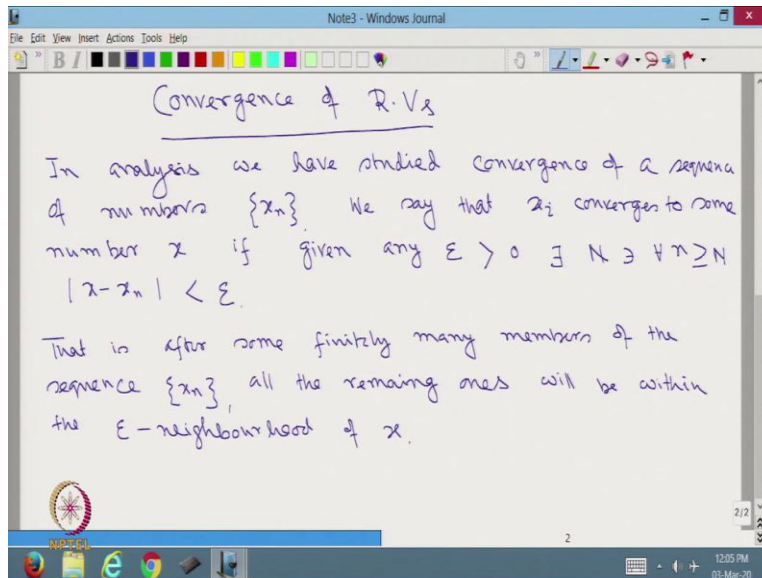 Note3 - Windows Journal
File Edit View Insert Actions Tools Help
Convergence of R.Vs
In analysis we have studied convergence of a sequenc
of numbers {xn}. We say that xi converges to some
number x if given any ε > 0 ∃ N ∋ ∀ n ≥ N
|x - xn| < ε.
That is after some finitely many members of the
sequence {xn}, all the remaing ones will be within
the ε-neighbourhood of x.
NPTEL
2
2/2
12:05 PM
03-Mar-20